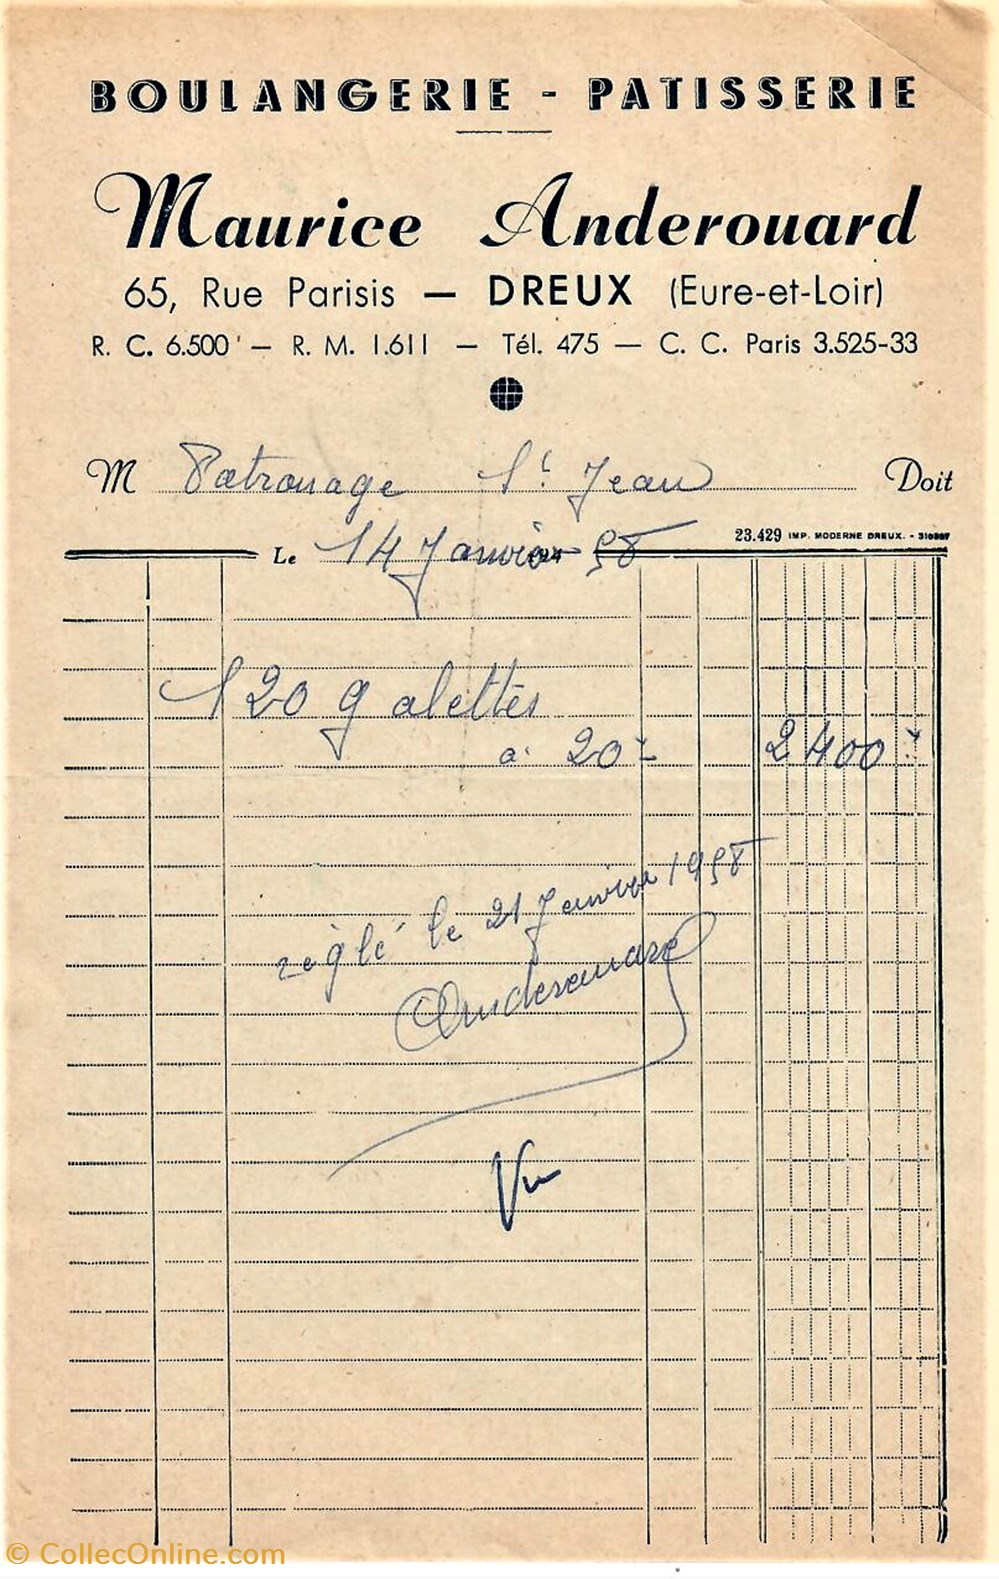 BOULANGERIE - PATISSERIE
Maurice Anderouard
65, Rue Parisis — DREUX (Eure-et-Loir)
R. C. 6.500 — R. M. 1.611 — Tél. 475 — C. C. Paris 3.525-33
M Patronage St. Jean Doit
23.429 IMP. MODERNE DREUX. -
Le 14 Janvier 58
120 galettes
a 20 2400
réglé le 21 Janvier 1958
Vu
© CollecOnline.com